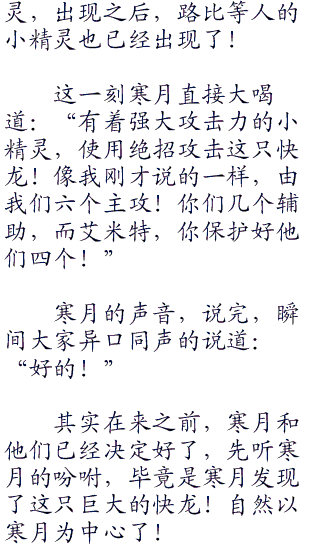 灵，出现之后，路比等人的
小精灵也已经出现了！
这一刻寒月直接大喝
道：“有着强大攻击力的小
精灵，使用绝招攻击这只快
龙！像我刚才说的一样，由
我们六个主攻！你们几个辅
助，而艾米特，你保护好他
们四个！”
寒月的声音，说完，瞬
间大家异口同声的说道：
“好的！”
其实在来之前，寒月和
他们已经决定好了，先听寒
月的吩咐，毕竟是寒月发现
了这只巨大的快龙！自然以
寒月为中心了！